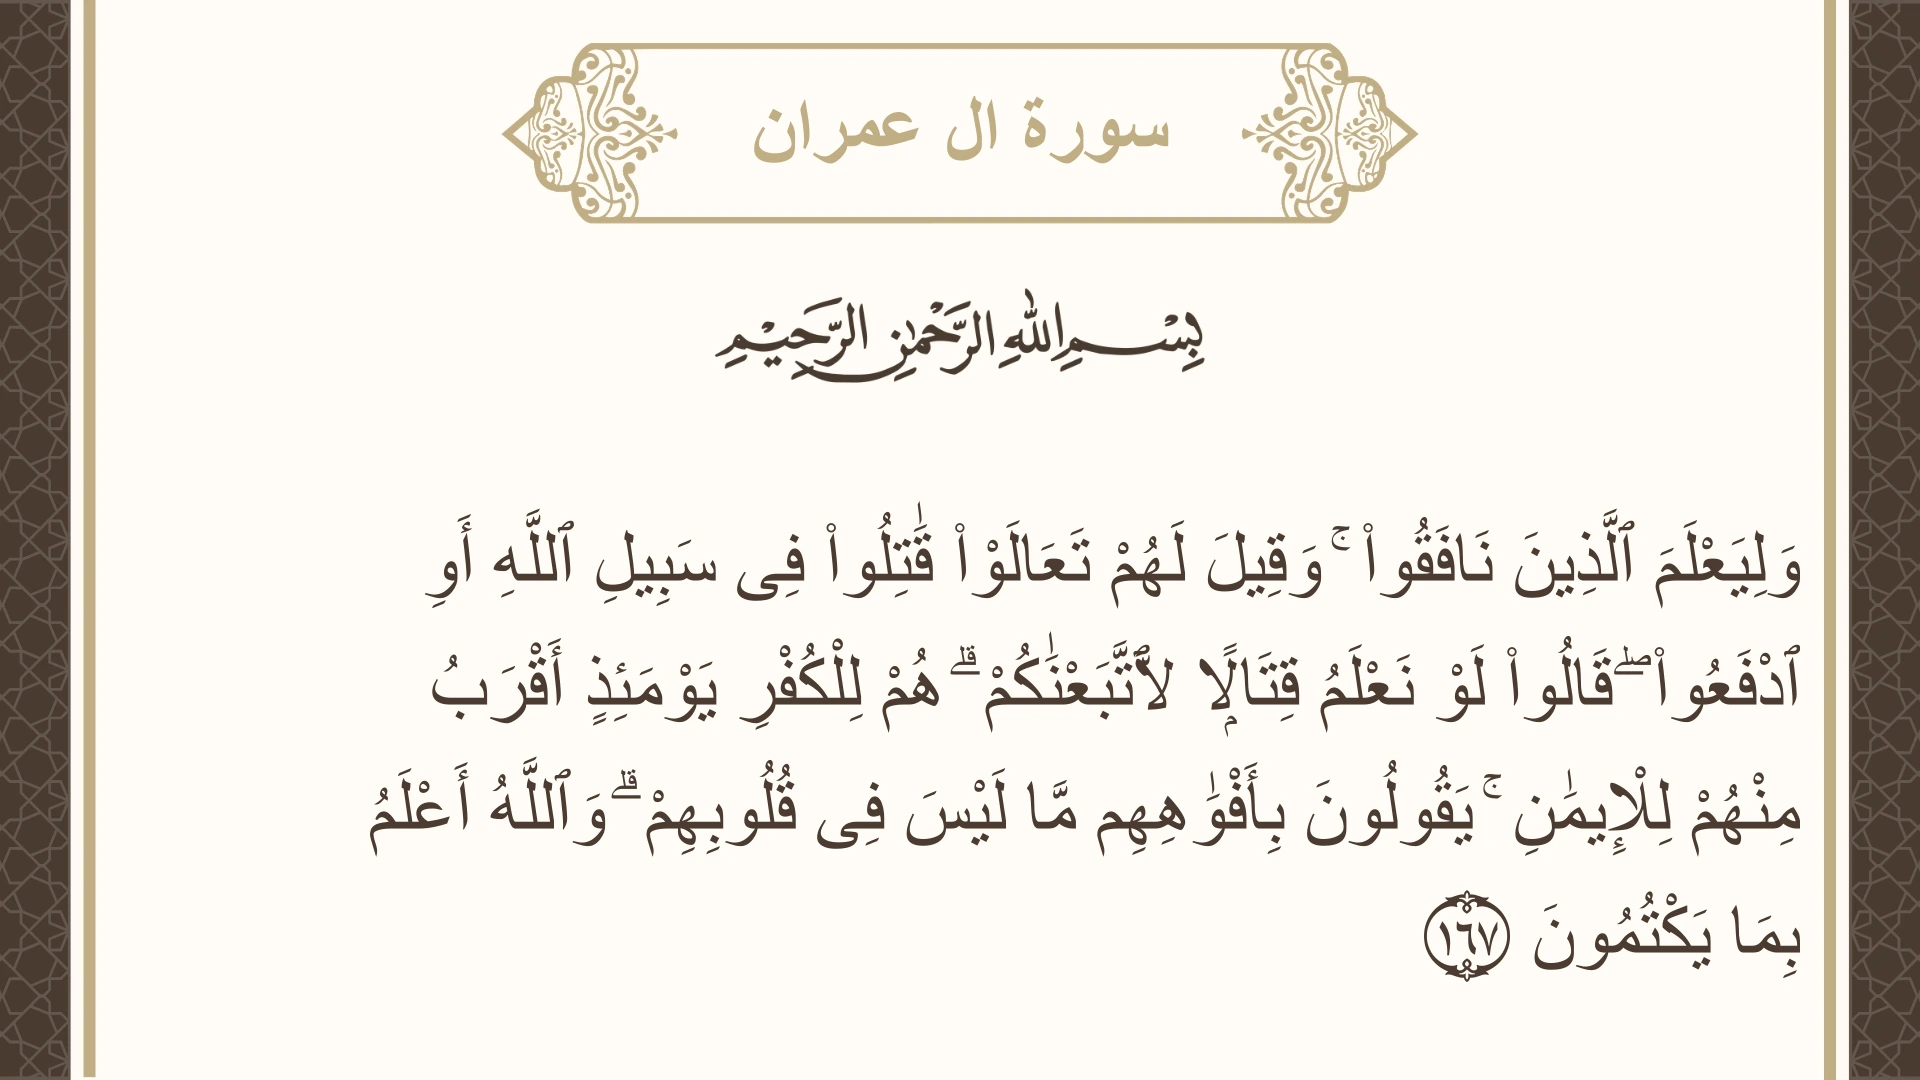 سورة ال عمران
بِسْمِ اللهِ الرَّحْمٰنِ الرَّحِيْمِ
وَلِيَعْلَمَ ٱلَّذِينَ نَافَقُوا۟ ۚ وَقِيلَ لَهُمْ تَعَالَوْا۟ قَٰتِلُوا۟ فِى سَبِيلِ ٱللَّهِ أَوِ
ٱدْفَعُوا۟ ۖ قَالُوا۟ لَوْ نَعْلَمُ قِتَالًۭا لَّٱتَّبَعْنَٰكُمْ ۗ هُمْ لِلْكُفْرِ يَوْمَئِذٍ أَقْرَبُ
مِنْهُمْ لِلْإِيمَٰنِ ۚ يَقُولُونَ بِأَفْوَٰهِهِم مَّا لَيْسَ فِى قُلُوبِهِمْ ۗ وَٱللَّهُ أَعْلَمُ
بِمَا يَكْتُمُونَ ١٦٧